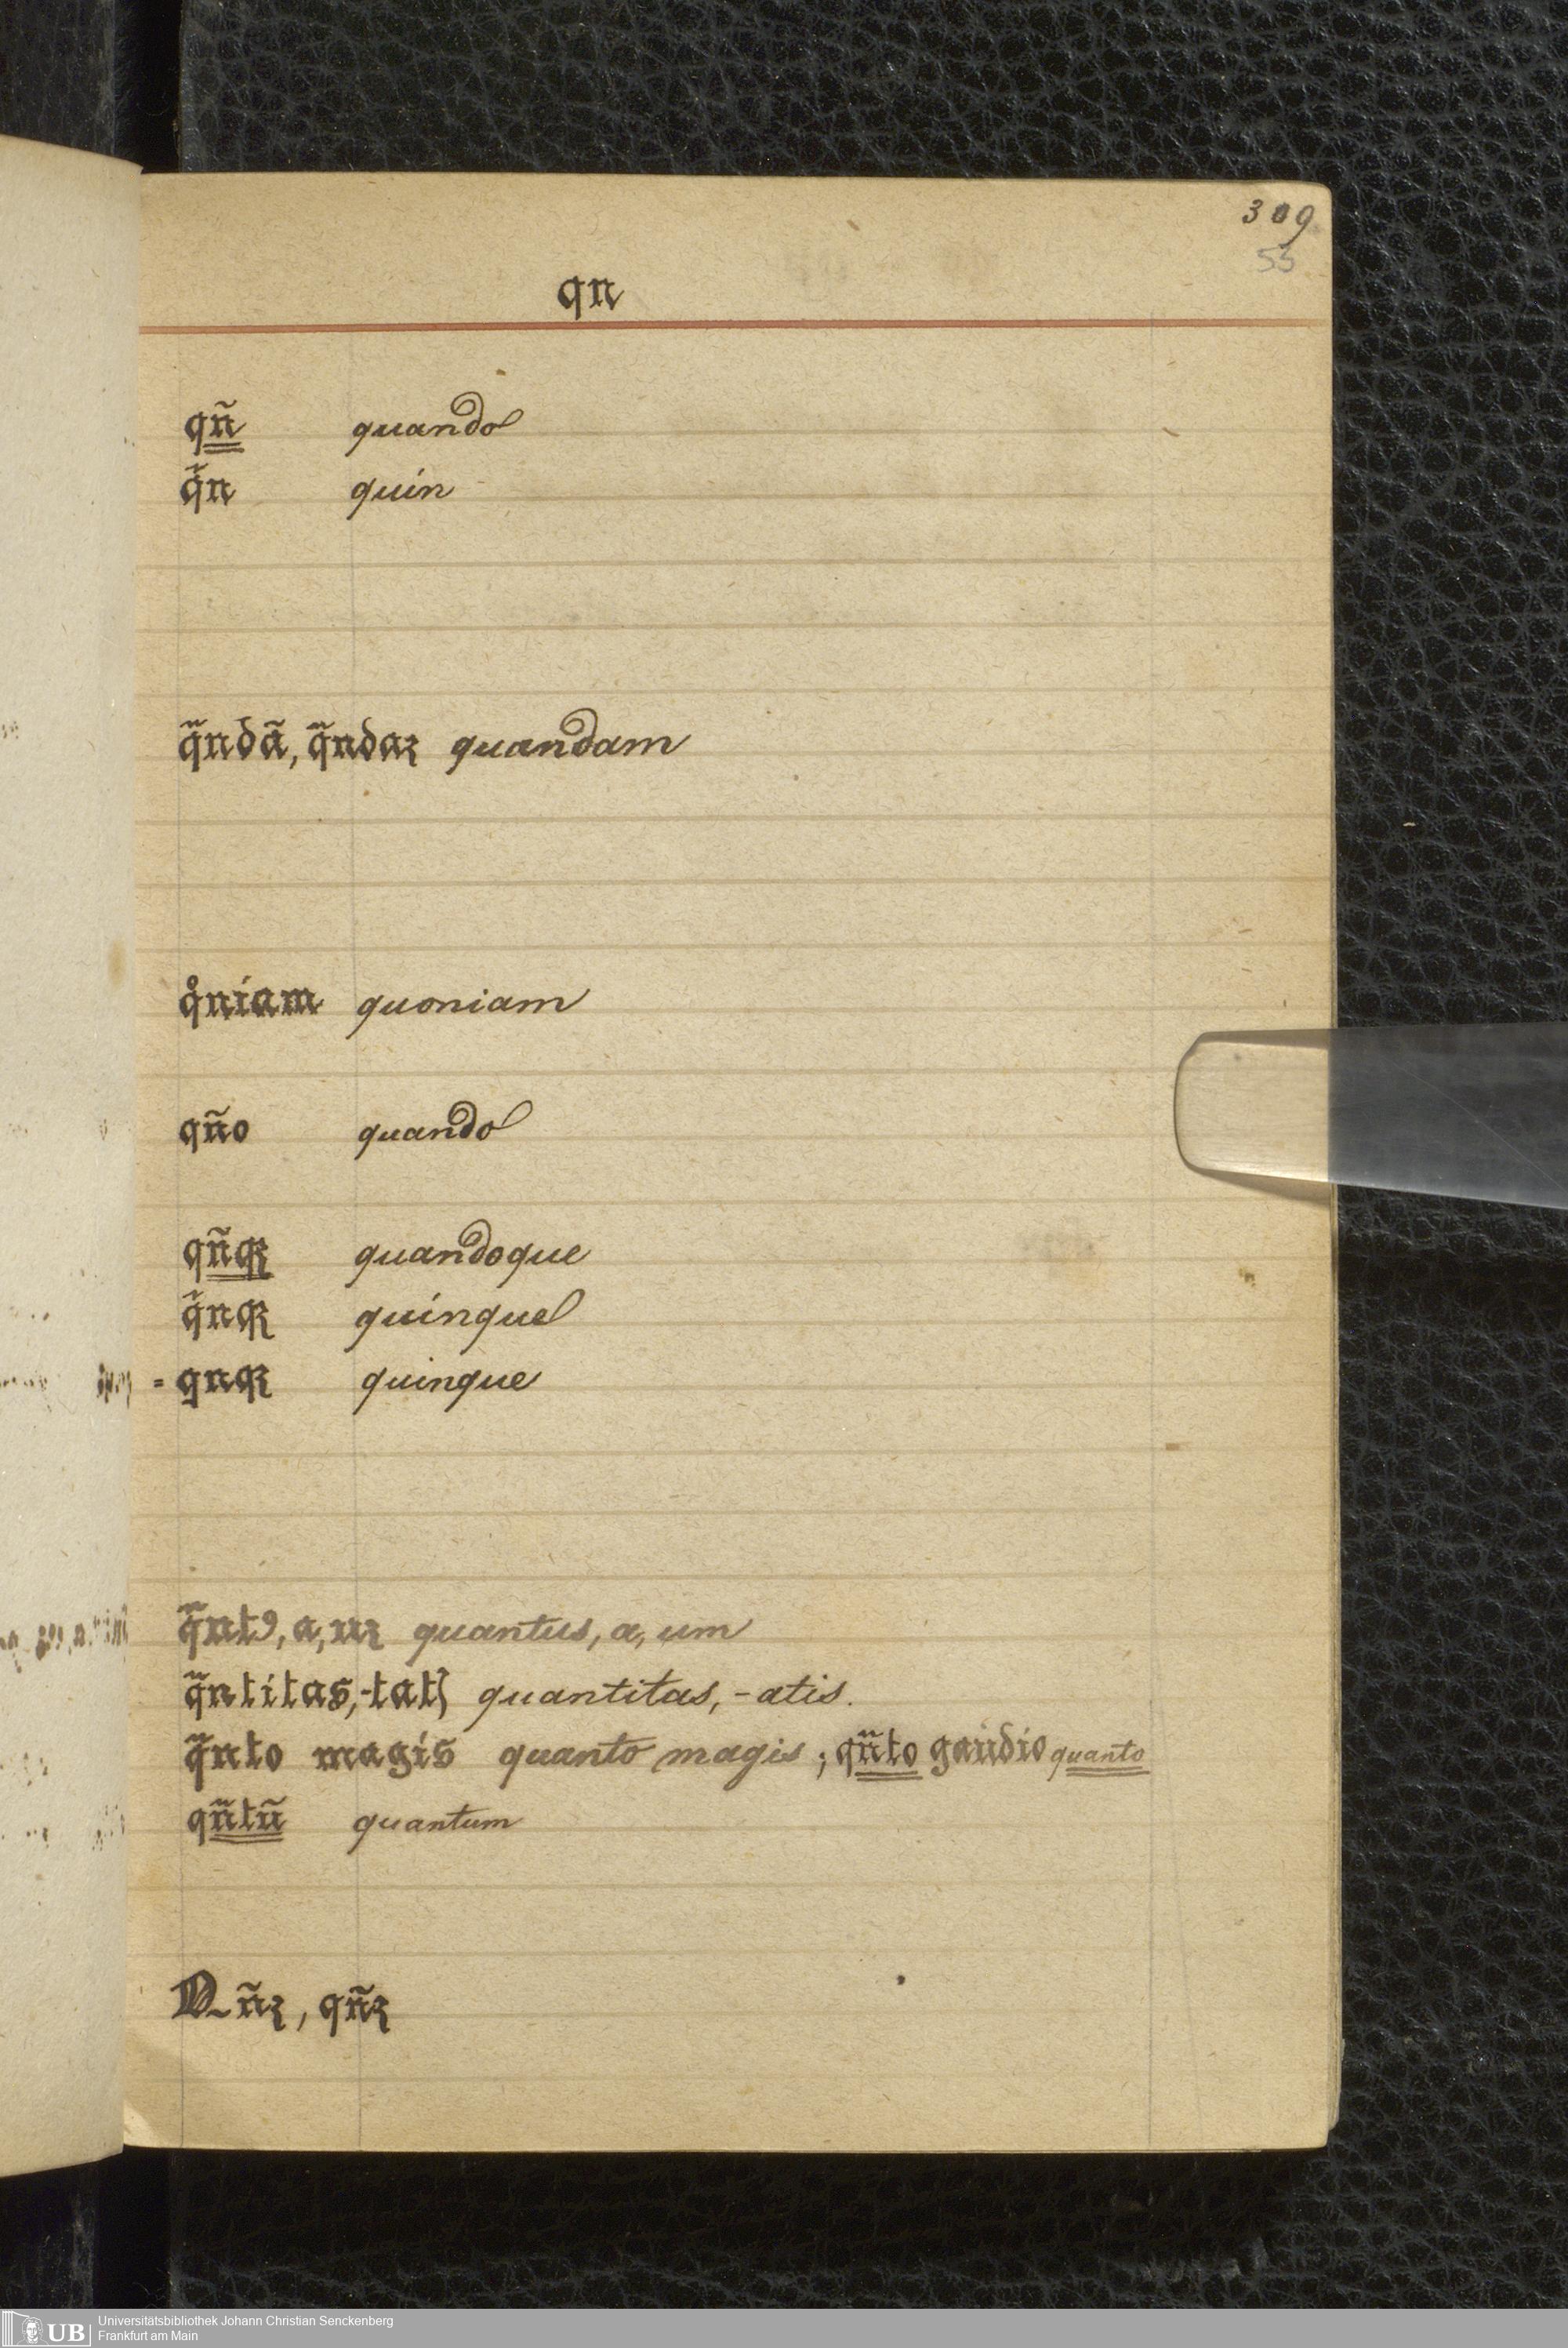 309
55
qn
qñ quando
q̃n quin
q̃ndã, q̃ndaꝫ quandam
q̊niam quoniam
qño quando
qñqꝫ quandoque
q̃nqꝫ quinque
= qnqꝫ quinque
q̃ntꝰ, a, uꝫ quantus, a, um
q̃ntitas, -tatꝭ quantitas, -atis.
q̃nto magis quanto magis; qñto gaudio quanto
qñtũ quantum
Qñꝫ, qñꝫ
UB Universitätsbibliothek Johann Christian Senckenberg
Frankfurt am Main